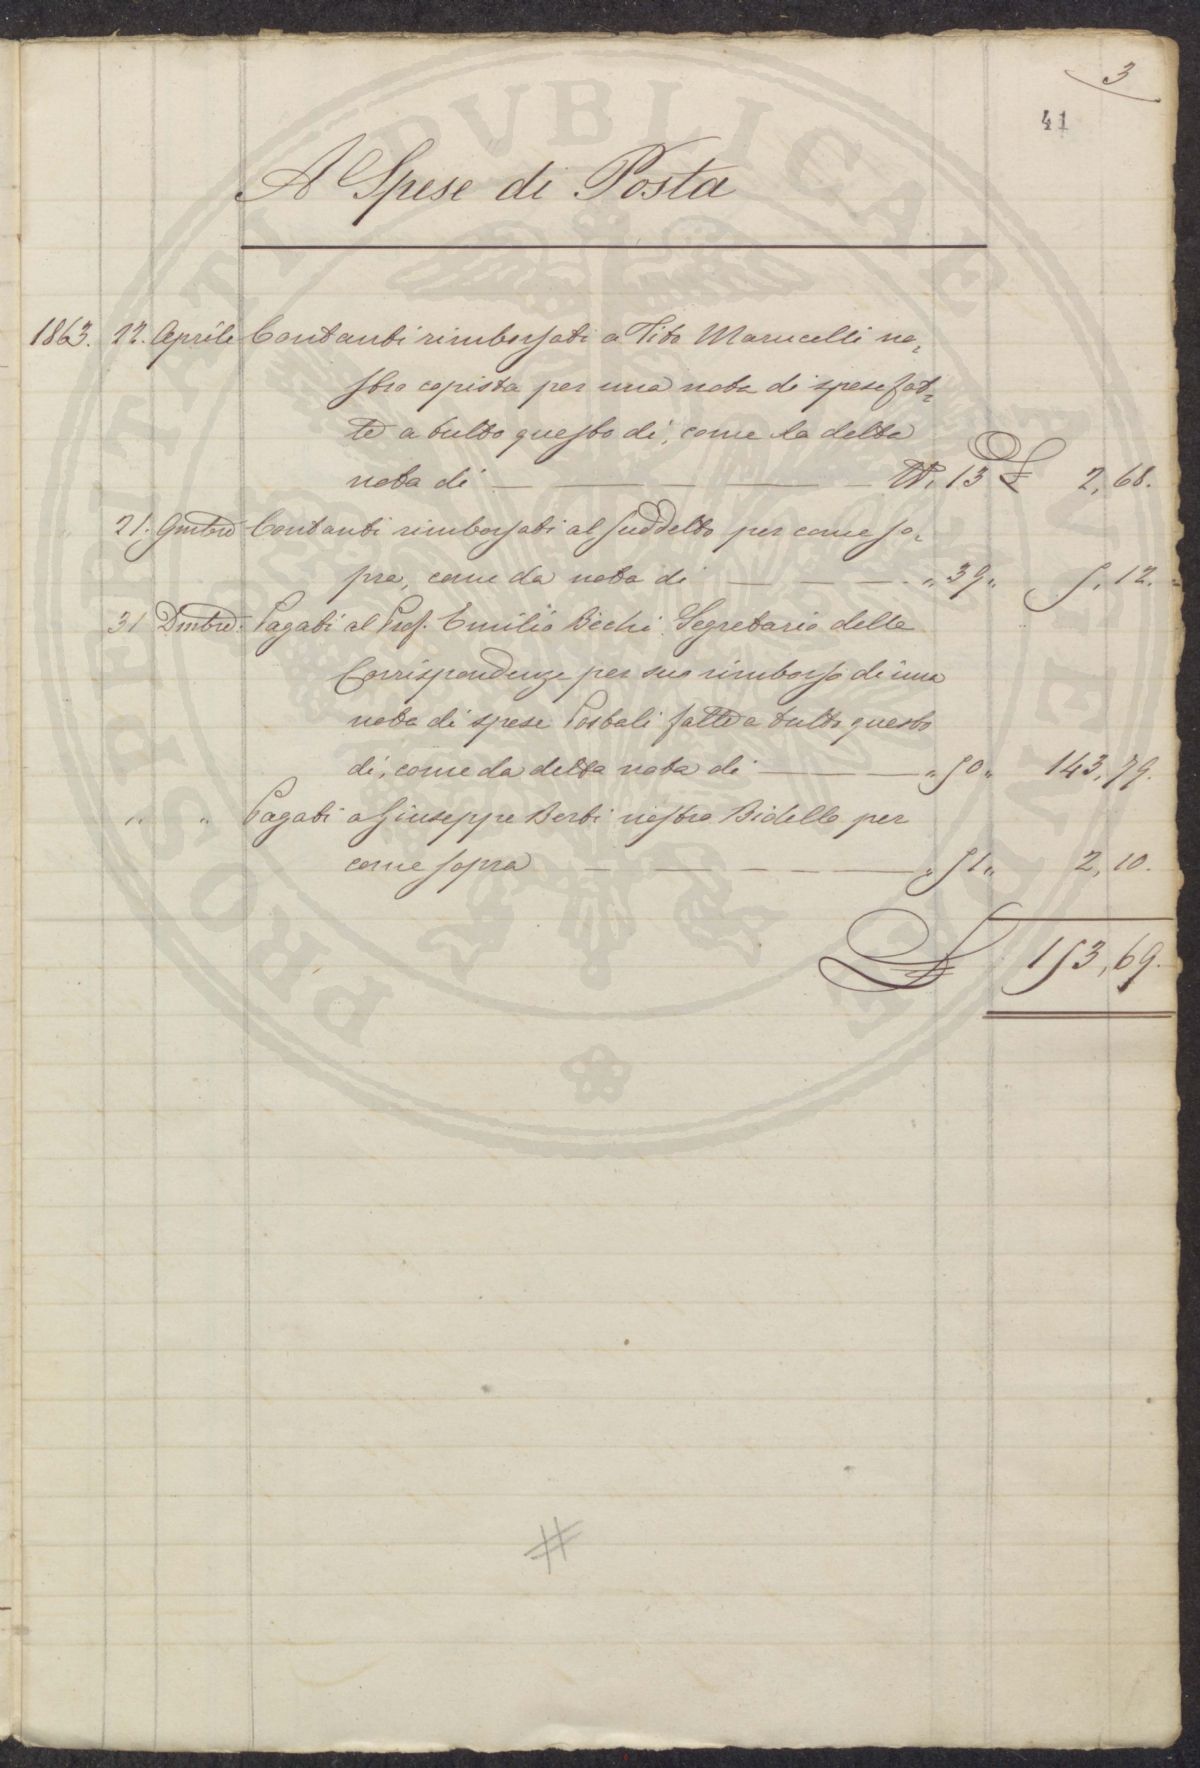 3
41
A Spese di Posta
1863. 22. Aprile Contanti rimborsati a Tito Marucelli no-
stro copista per una nota di spese fat-
te a tutto questo dì, come da detta
nota di N. 13 £ 2,68.
21. 9mbre Contanti rimborsati al suddetto per come so-
pra, come da nota di " 39 " 5,12.
31 Dmbre. Pagati al Prof. Emilio Bechi Segretario delle
Corrispondenze per suo rimborso di una
nota di spese Postali fatte a tutto questo
dì, come da detta nota di " 50 " 143,79.
" " Pagati a Giuseppe Berti nostro Bidello per
come sopra " 51 " 2,10.
£ 153,69.
#
PROSPERITATI PVBLICAE AVGENDAE